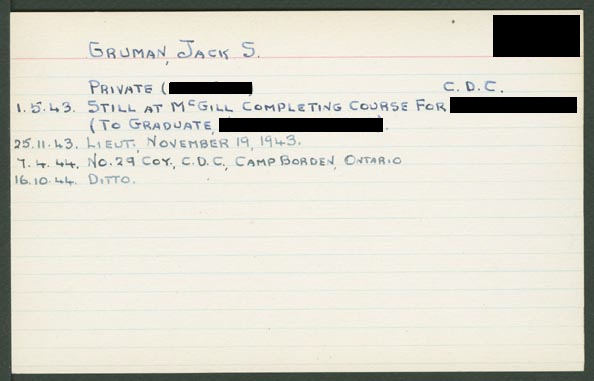 GRUMAN, JACK S.
PRIVATE ( ) C.D.C.
1.5.43. STILL AT McGILL COMPLETING COURSE FOR
(TO GRADUATE, .
25.11.43. LIEUT., NOVEMBER 19, 1943.
7.4.44. NO.29 COY., C.D.C., CAMP BORDEN, ONTARIO
16.10.44. DITTO.